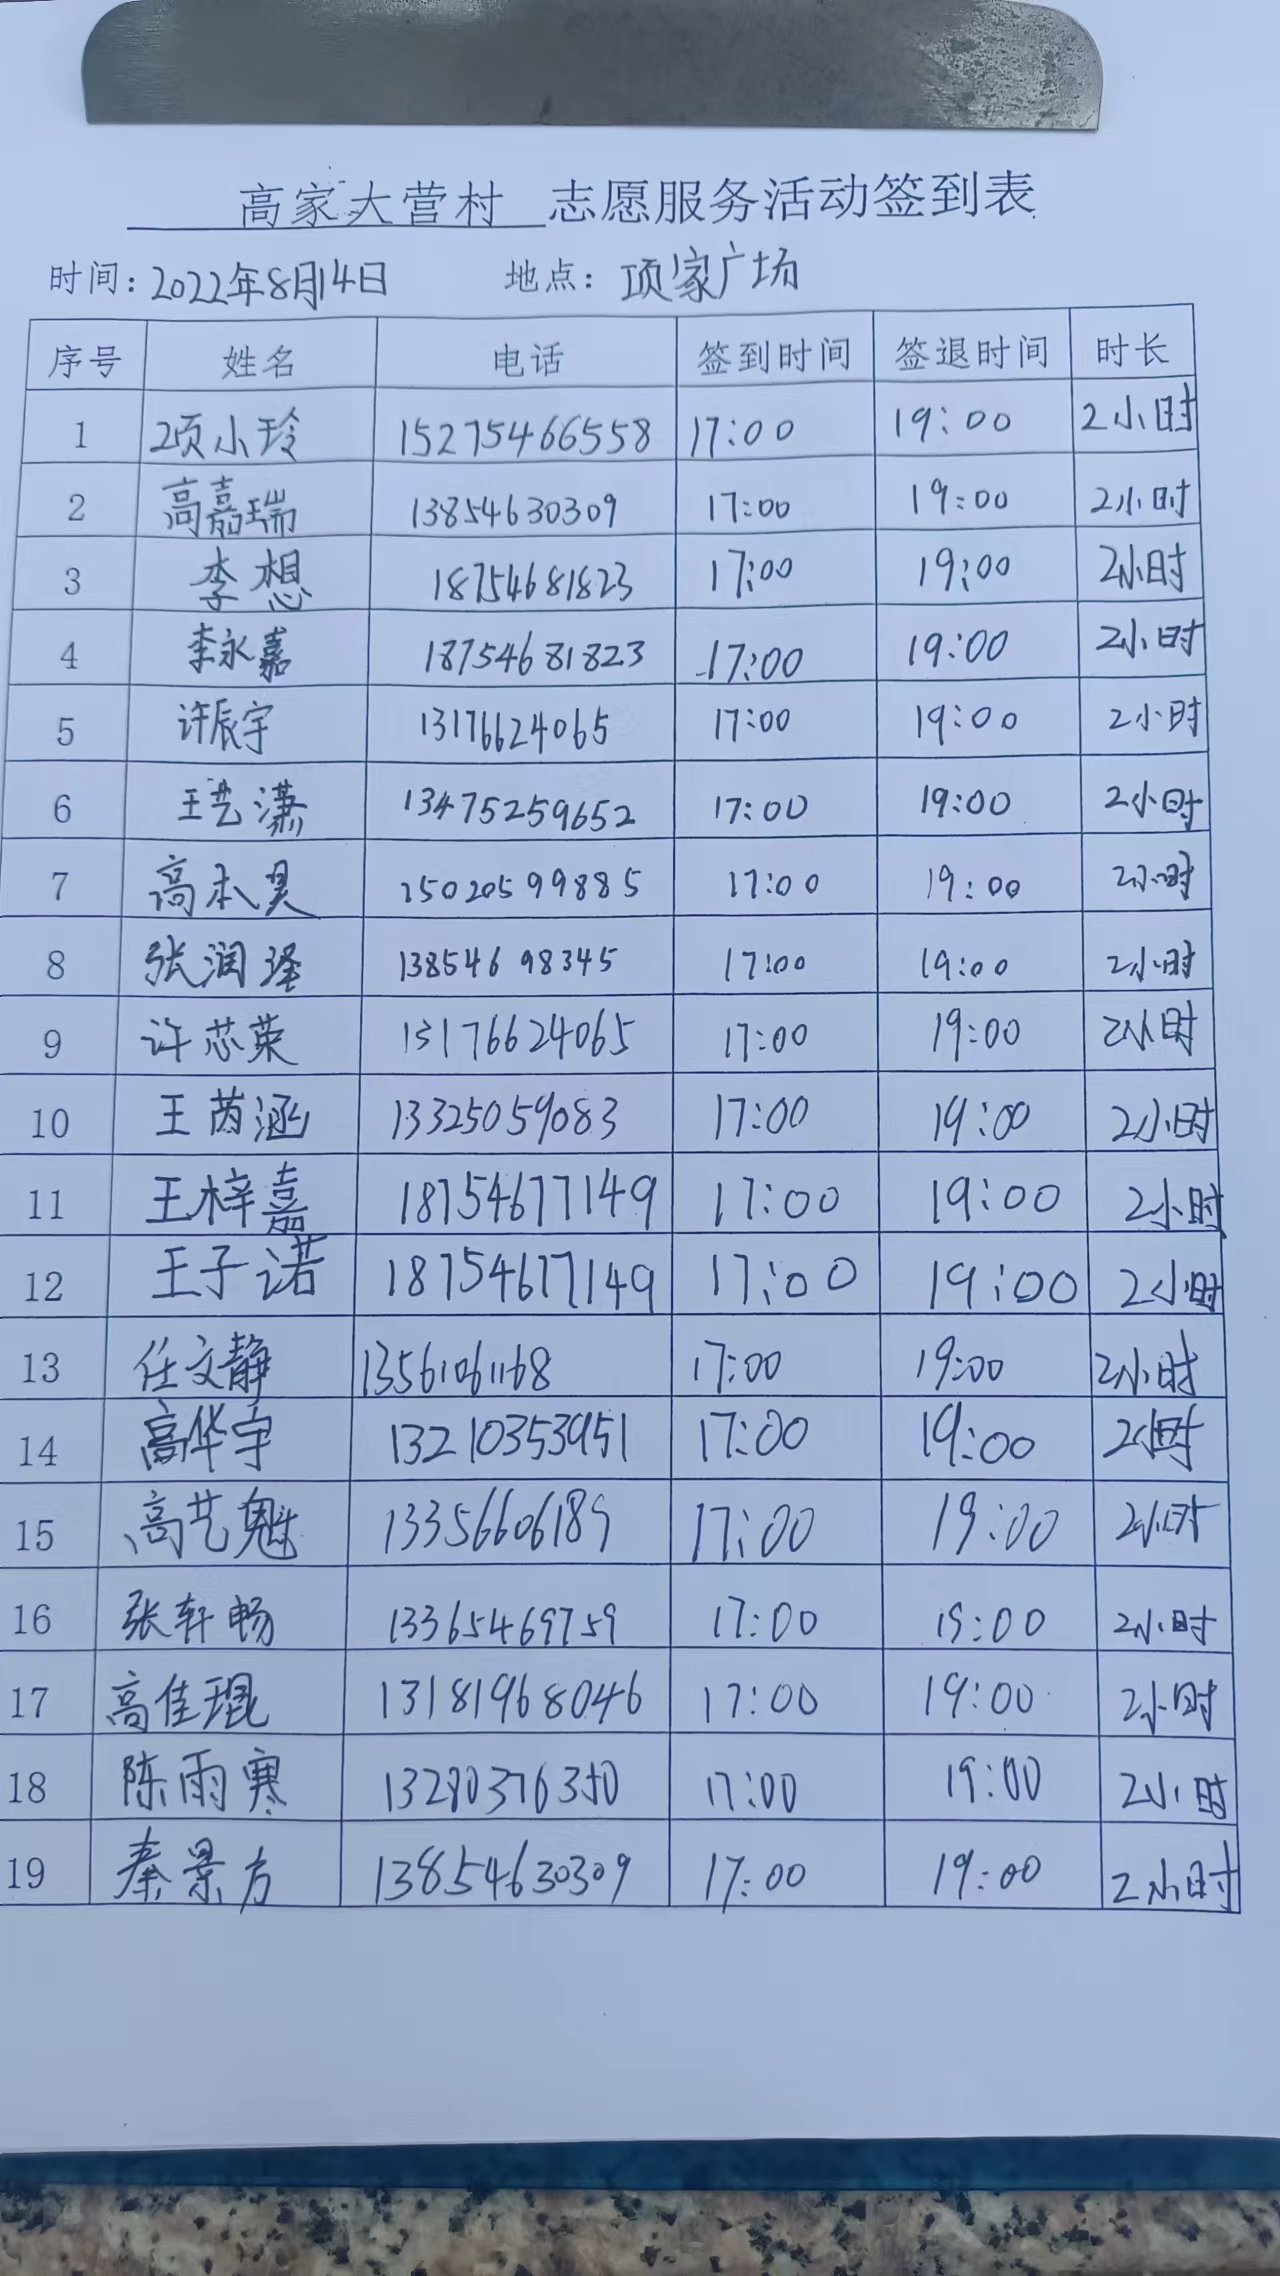 高家大营村 志愿服务活动签到表
时间：2022年8月14日 地点：项家广场
序号 姓名 电话 签到时间 签退时间 时长
1 项小玲 15275466558 17:00 19:00 2小时
2 高嘉瑞 13854630309 17:00 19:00 2小时
3 李想 18754681823 17:00 19:00 2小时
4 李永嘉 18754681823 17:00 19:00 2小时
5 许辰宇 13176624065 17:00 19:00 2小时
6 王艺潇 13475259652 17:00 19:00 2小时
7 高本昊 15020599885 17:00 19:00 2小时
8 张润泽 13854698345 17:00 19:00 2小时
9 许芯荣 13176624065 17:00 19:00 2小时
10 王芮涵 13325059083 17:00 19:00 2小时
11 王梓嘉 18754677149 17:00 19:00 2小时
12 王子诺 18754677149 17:00 19:00 2小时
13 任文静 13561061168 17:00 19:00 2小时
14 高华宇 13210353951 17:00 19:00 2小时
15 高艺魁 13356606189 17:00 19:00 2小时
16 张轩畅 13365469759 17:00 19:00 2小时
17 高佳琨 13181968046 17:00 19:00 2小时
18 陈雨寒 13280376350 17:00 19:00 2小时
19 秦景方 13854630309 17:00 19:00 2小时